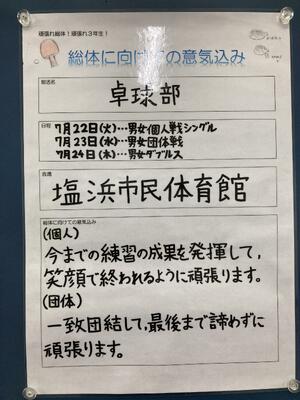 頑張れ総体!頑張れ3年生!
総体に向けての意気込み
部活名
卓球部
日程
7月22日(火)…男女個人戦シングル
7月23日(水)…男女団体戦
7月24日(木)…男女ダブルス
会場
塩浜市民体育館
総体に向けての意気込み
(個人)
今までの練習の成果を発揮して,
笑顔で終われるように頑張ります。
(団体)
一致団結して,最後まで諦めずに
頑張ります。